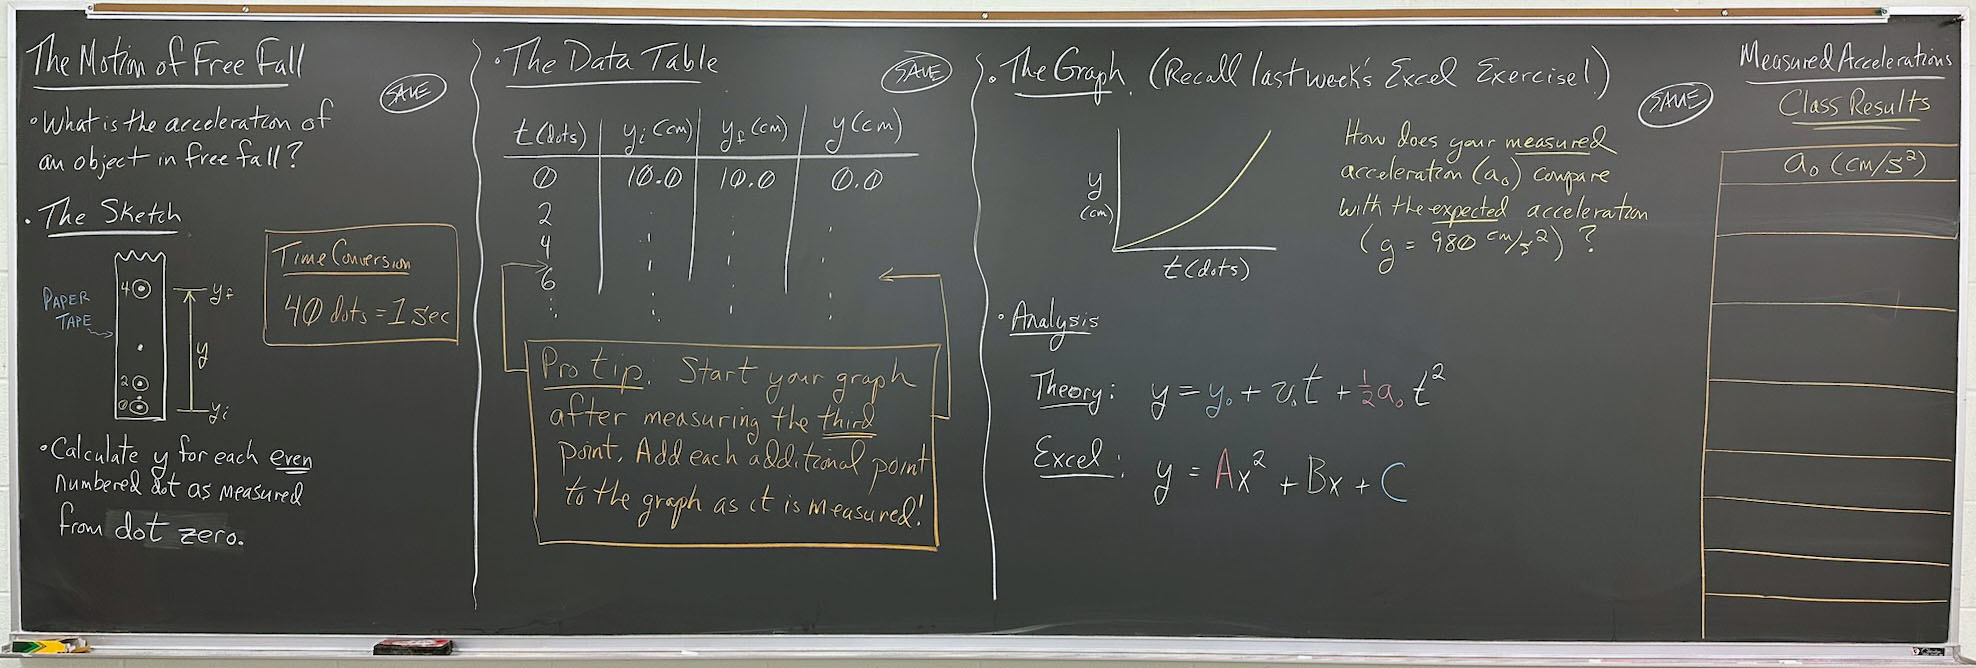 The Motion of Free Fall
SAVE
• What is the acceleration of
an object in free fall?
• The Sketch
PAPER
TAPE
4
2
0
yf
y
yi
Time Conversion
40 dots = 1 sec
• Calculate y for each even
numbered dot as measured
from dot zero.
• The Data Table
SAVE
t (dots) yi (cm) yf (cm) y (cm)
0 10.0 10.0 0.0
2
4
6
Pro tip: Start your graph
after measuring the third
point. Add each additional point
to the graph as it is measured!
• The Graph (Recall last week's Excel Exercise!)
SAVE
y
(cm)
t (dots)
How does your measured
acceleration (a₀) compare
with the expected acceleration
(g = 980 cm/s²) ?
• Analysis
Theory: y = y₀ + v₀t + ½a₀t²
Excel: y = Ax² + Bx + C
Measured Accelerations
Class Results
a₀ (cm/s²)